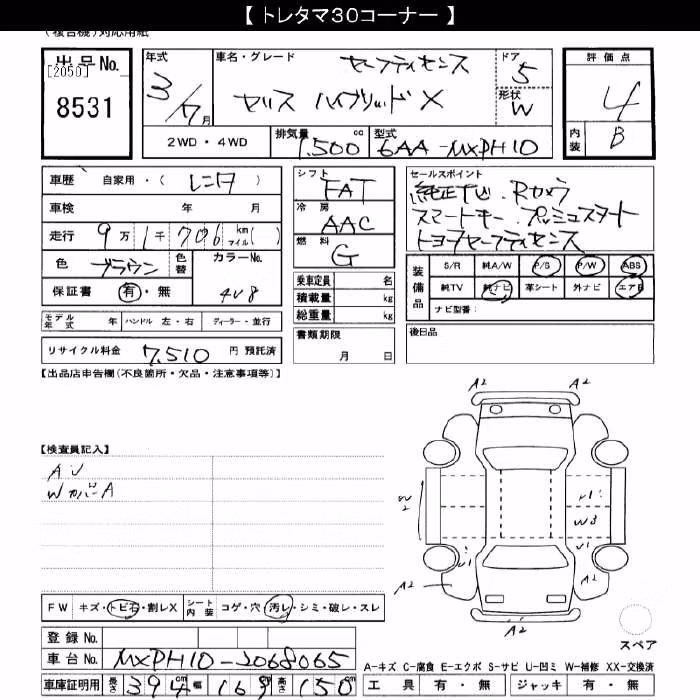 【 トレタマ30コーナー 】
(複合機)対応用紙
出品No.
[2050]
8531
年式
3/7月
車名・グレード
セーフティセンス
ヤリス ハイブリッドX
ドア
5
形状
W
評価点
4
内装
B
2WD・4WD
排気量
1,500 cc
型式
6AA-MXPH10
車歴 自家用・( レンタ )
車検 年 月
走行 9万1千706 km マイル( )
色 ブラウン 色替 カラーNo. 4V8
保証書 有・無
モデル年式 年 ハンドル 左・右 ディーラー・並行
リサイクル料金 7,510 円 預託済
シフト
FAT
冷房
AAC
燃料
G
乗車定員 名
積載量 kg
総重量 kg
書類期限
月 日
セールスポイント
純正ナビ.Rカメラ
スマートキー.プッシュスタート
トヨタセーフティセンス
装備品
S/R 純A/W P/S P/W ABS
純TV 純ナビ 革シート 外ナビ エアB
ナビ型番:
後日品
【出品店申告欄(不良箇所・欠品・注意事項等)】
【検査員記入】
Wカバー A
A2 A2
W2
W3
A2 A2
A2
FW キズ・トビ石・割レX シート内装 コゲ・穴・汚レ・シミ・破レ・スレ
スペア
登録No.
車台No. MXPH10-2068065
車庫証明用 長さ 394 cm 幅 169 cm 高さ 150 cm
A-キズ C-腐食 E-エクボ S-サビ U-凹ミ W-補修 XX-交換済
工具 有・無 ジャッキ 有・無